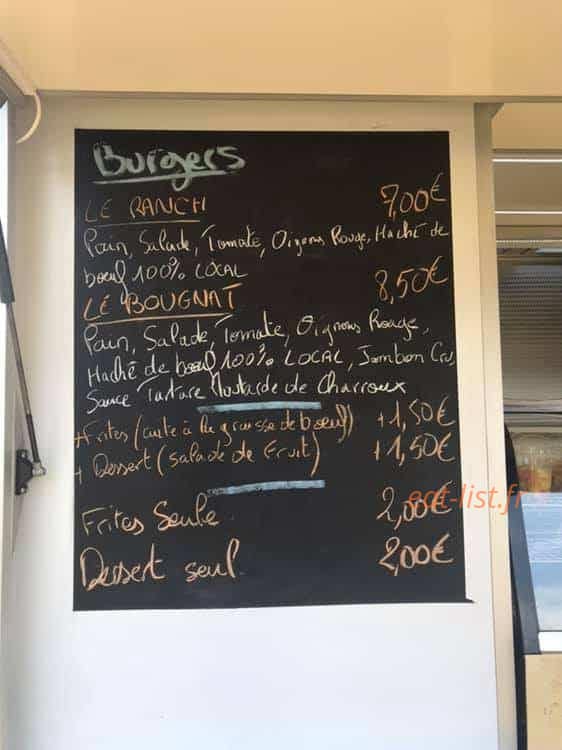 Burgers
LE RANCH 7,00€
Pain, Salade, Tomate, Oignons Rouge, Haché de
bœuf 100% LOCAL
LE BOUGNAT 8,50€
Pain, Salade, Tomate, Oignons Rouge,
Haché de bœuf 100% LOCAL, Jambon Cru,
Sauce Tartare Moutarde de Charroux
+ Frites (cuite à la graisse de boeuf) +1,50€
+ Dessert (salade de Fruit) +1,50€
Frites Seule 2,00€
eat-list.fr
Dessert seul 2,00€